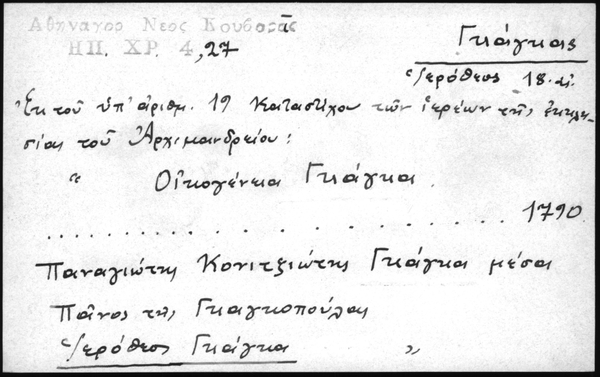 Αθηναγορ Νεος Κουβαρας
ΗΠ. ΧΡ. 4,27
Γκιάγκας
Ἱερόθεος 18. αἰ.
Ἐκ τοῦ ὑπ' ἀριθμ. 19 Καταστίχου τῶν ἱερέων τῆς ἐκκλη-
σίας τοῦ Ἀρχιμανδρείου:
" Οἰκογένεια Γκιάγκα
. . . . . . . . . . . . . . . . . . . . 1790
Παναγιώτης Κονιτζιώτης Γκιάγκα μέσα
Πᾶνος τῆς Γκιαγκοπούλας
Ἱερόθεος Γκιάγκα "